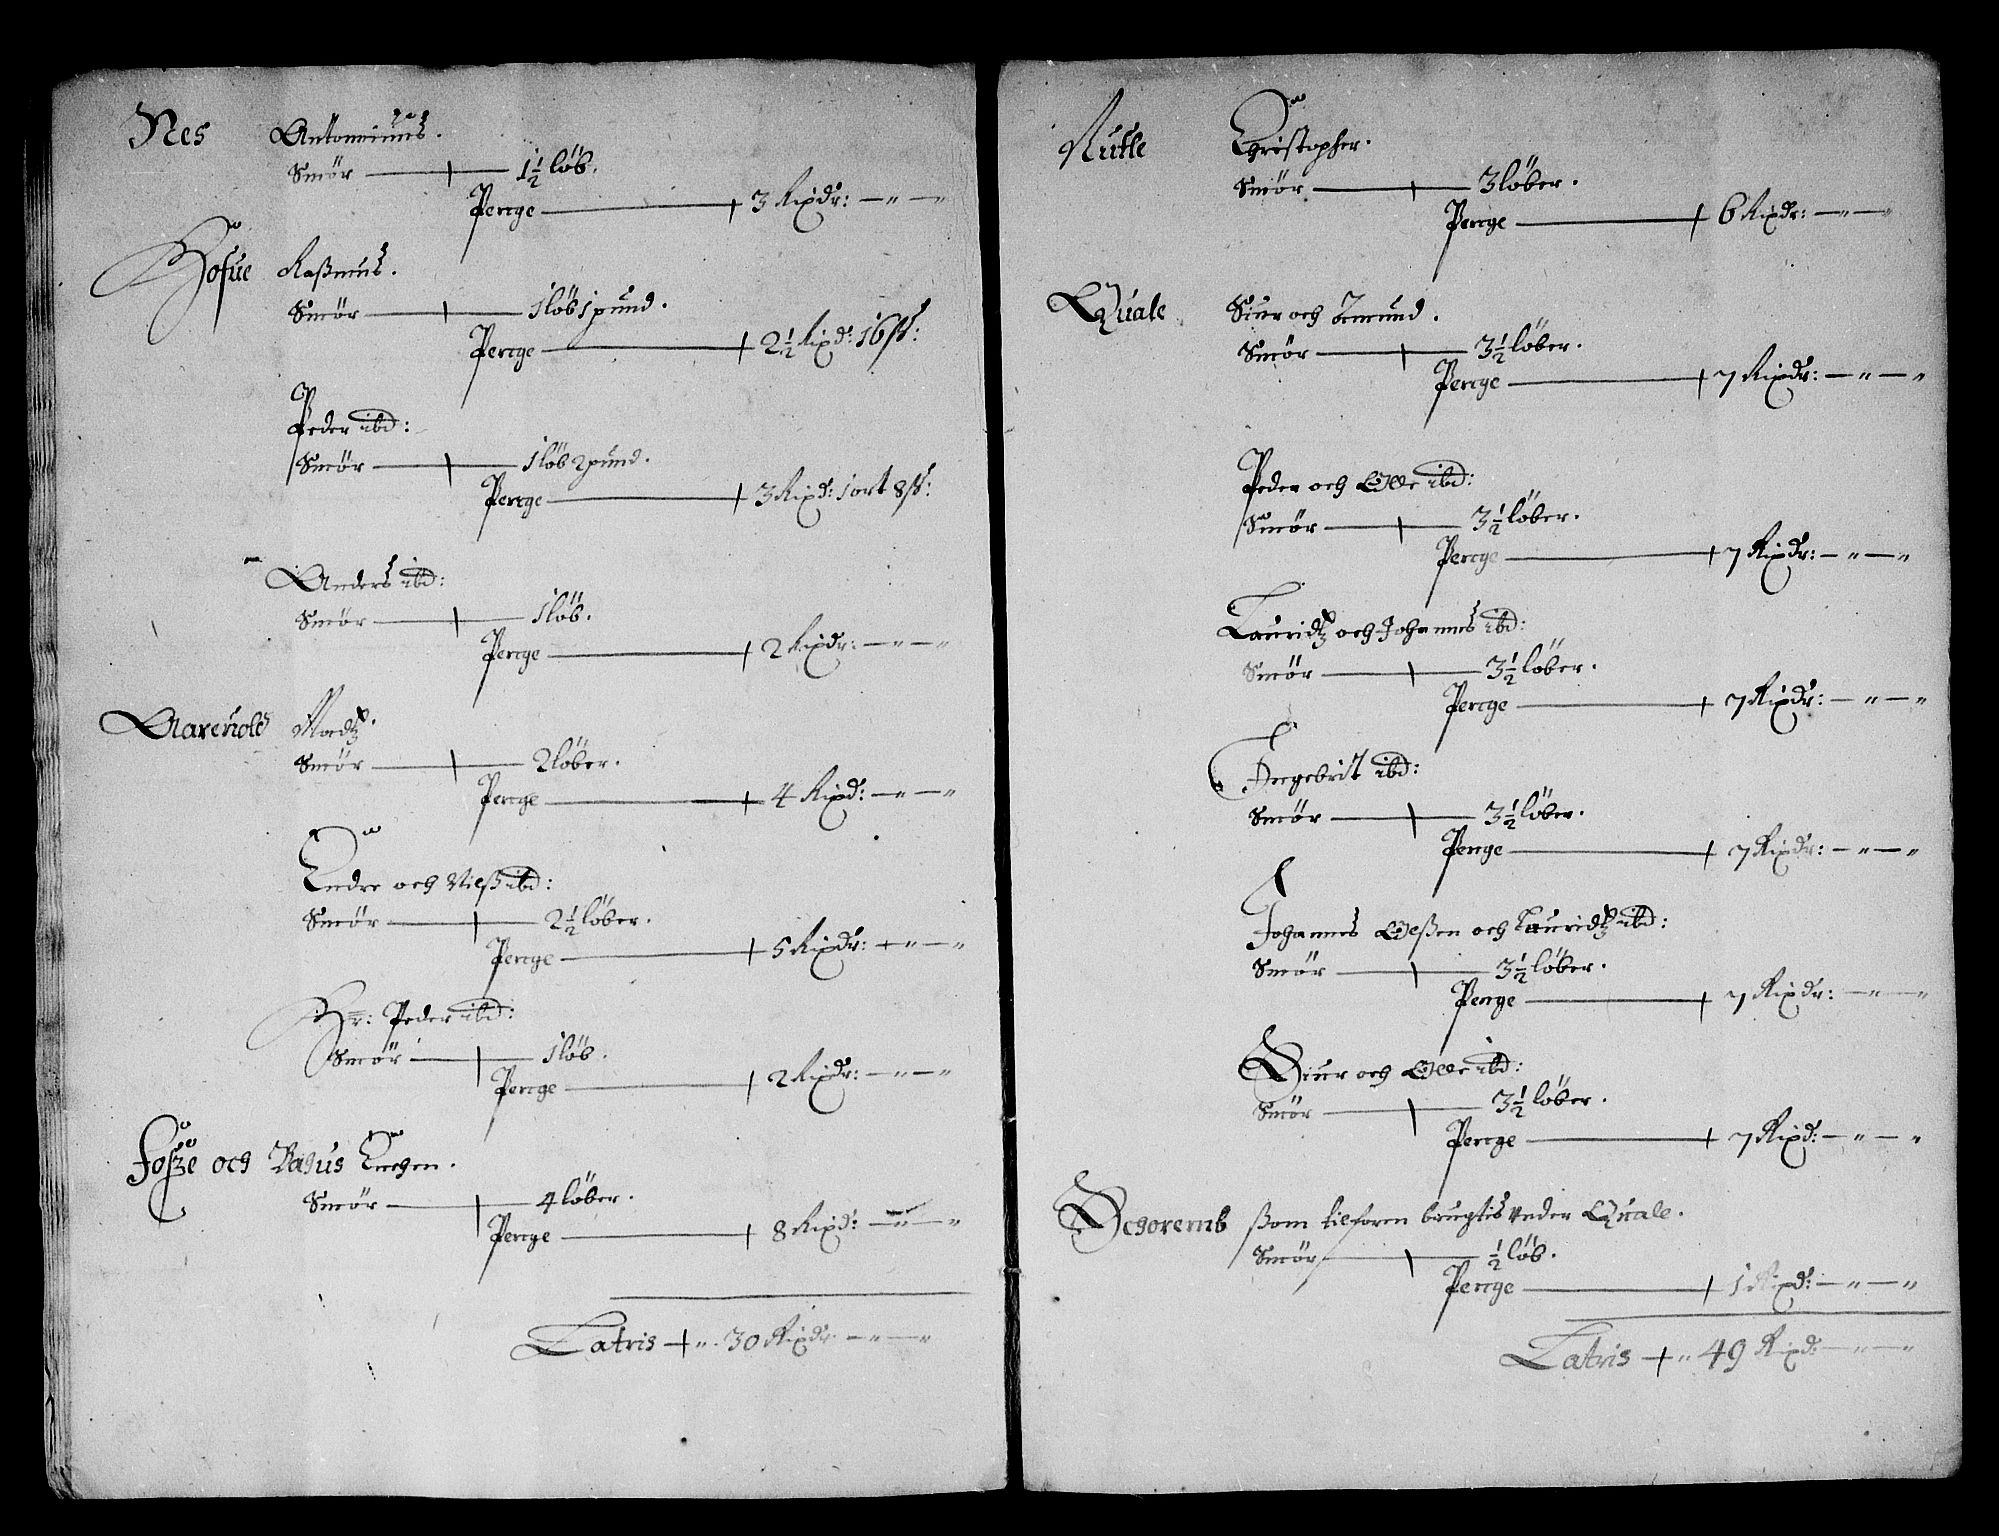 Nes Antonniuus.
Smör — 1½ löb.
Penge — 3 Rixdr: — „ — „
Hofue Raßmus.
Smör — 1 löb 1 pund.
Penge — 2½ Rixd: 16 ß:
Peder ibd:
Smör — 1 löb 2 pund.
Penge — 3 Rixd: 1 ort 8 ß:
Anders ibd:
Smör — 1 löb.
Penge — 2 Rixdr: — „ — „
Madtz.
Smör — 2 löber.
Penge — 4 Rixd: — „ — „
Endre och Nielß ibd:
Smör — 2½ löber.
Penge — 5 Rixdr: — „ — „
Hr: Peder ibd:
Smör — 1 löb.
Penge — 2 Rixdr: — „ — „
och
Smör — 4 löber.
Penge — 8 Rixd: — „ — „
Latris — „ 30 Rixdr — „ — „
Nutle Christopher.
Smör — 3 löber.
Penge — 6 Rixdr: — „ — „
Quale Siur och Amund.
Smör — 3½ löber.
Penge — 7 Rixdr: — „ — „
Peder och Olle ibd:
Smör — 3½ löber.
Penge — 7 Rixdr: — „ — „
Lauridtz och Johannes ibd:
Smör — 3½ löber.
Penge — 7 Rixdr: — „ — „
Ingebrit ibd:
Smör — 3½ löber.
Penge — 7 Rixdr: — „ — „
Johannes Olßen och Lauridtz ibd:
Smör — 3½ löber.
Penge — 7 Rixdr: — „ — „
Siur och Olle ibd:
Smör — 3½ löber.
Penge — 7 Rixd: — „ — „
ßom tilforn brugtis under Quale.
Smör — ½ löb.
Penge — 1 Rixd: — „ — „
Latris — „ 49 Rixd: — „ — „